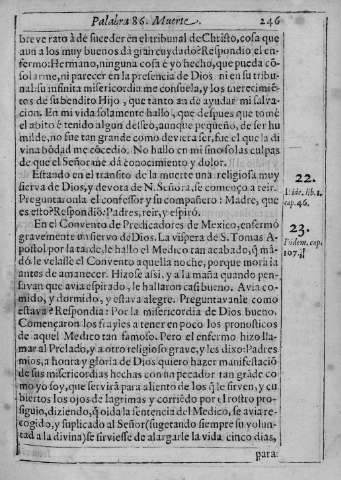 Palabra 86. Muerte. 246
breve rato à de suceder en el tribunal de Christo, cosa que
aun a los muy buenos da gran cuydado? Respondio el en-
fermo: Hermano, ninguna cosa è yo hecho, que pueda cō-
solarme, ni parecer en la presencia de Dios ni en su tribu-
nal: su infinita misericordia me consuela, y los merecimiē-
tos de su bendito Hijo, que tanto an de ayudar mi salva-
cion. En mi vida solamente hallo, que despues que tomè
el abito è tenido algun deseo, aunque pequeño, de ser hu
milde, no fue tan grande como deviera ser, fue el que la di
vina bōdad me cōcedio. No hallo en mi sino solas culpas
de que el Señor me dà conocimiento y dolor.
Estando en el transito de la muerte una religiosa muy
sierva de Dios, y devota de N. Señora, se començo a reir.
Preguntaronla el confessor y su compañero: Madre, que
es esto? Respondiò: Padres, reir, y espirò.
22.
lib. 1.
cap. 46.
En el Convento de Predicadores de Mexico, enfermò
gravemente un siervo de Dios. La vispera de S. Tomas A-
postol por la tarde, le hallo el Medico tan acabado, q̄ mā-
dò le velasse el Convento aquella noche, porque moriria
antes de amanecer. Hizose assi, y a la mañana quando pen-
savan que avia espirado, le hallaron casi bueno. Avia co-
mido, y dormido, y estava alegre. Preguntavanle como
estava? Respondia: Por la misericordia de Dios bueno.
Començaron los frayles a tener en poco los pronosticos
de aquel Medico tan famoso. Pero el enfermo hizo lla-
mar al Prelado, y a otro religioso grave, y les dixo: Padres
mios, a honra y gloria de Dios quiero hazer manifestaciō
de sus misericordias hechas con un pecador tan grāde co
mo yo soy, que servirà para aliento de los q̄ le sirven, y cu
biertos los ojos de lagrimas y corriēdo por el rostro pro-
siguio, diziendo, q̄ oida la sentencia del Medico, se avia re-
cogido, y suplicado al Señor (sugetando siempre su volun-
tad a la divina) se sirviesse de alargarle la vida cinco dias,
23.
Ibidem. cap.
107.
para